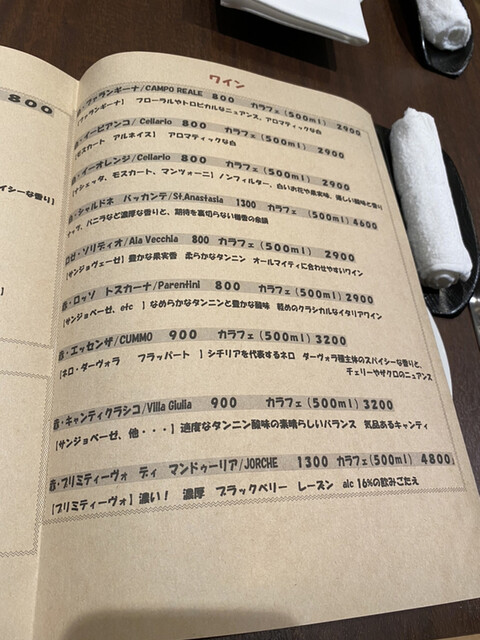 800
ワイン
・ファランギーナ/CAMPO REALE 800 カラフェ(500ml) 2900
【ファランギーナ】 フローラルやトロピカルなニュアンス、アロマティックな白
・イービアンコ/Cellario 800 カラフェ(500ml) 2900
【モスカート アルネイス】 アロマティックな白
・イーオレンジ/Cellario 800 カラフェ(500ml) 2900
【ナシェッタ、モスカート、マンツォーニ】ノンフィルター、白いお花や果実味、優しい酸味と香り
・シャルドネ バッカンテ/St.Anastasia 1300 カラフェ(500ml) 4600
ナッツ、バニラなど濃厚な香りと、期待を裏切らない極香の余韻
ロゼ・ソリディオ/Ala Vecchia 800 カラフェ(500ml) 2900
【サンジョヴェーゼ】豊かな果実香 柔らかなタンニン オールマイティに合わせやすいワイン
・ロッソ トスカーナ/Parentini 800 カラフェ(500ml) 2900
【サンジョベーゼ、etc 】なめらかなタンニンと豊かな酸味 軽めのクラシカルなイタリアワイン
・エッセンザ/CUMMO 900 カラフェ(500ml) 3200
【ネロ・ダーヴォラ フラッパート 】シチリアを代表するネロ ダーヴォラ種主体のスパイシーな香りと、
チェリーやザクロのニュアンス
・キャンティクラシコ/Villa Giulia 900 カラフェ(500ml) 3200
【サンジョベーゼ、他・・・】適度なタンニン酸味の素晴らしいバランス 気品あるキャンティ
・プリミティーヴォ ディ マンドゥーリア/JORCHE 1300 カラフェ(500ml) 4800
【プリミティーヴォ】濃い! 濃厚 ブラックベリー レーズン alc 16%の飲みごたえ